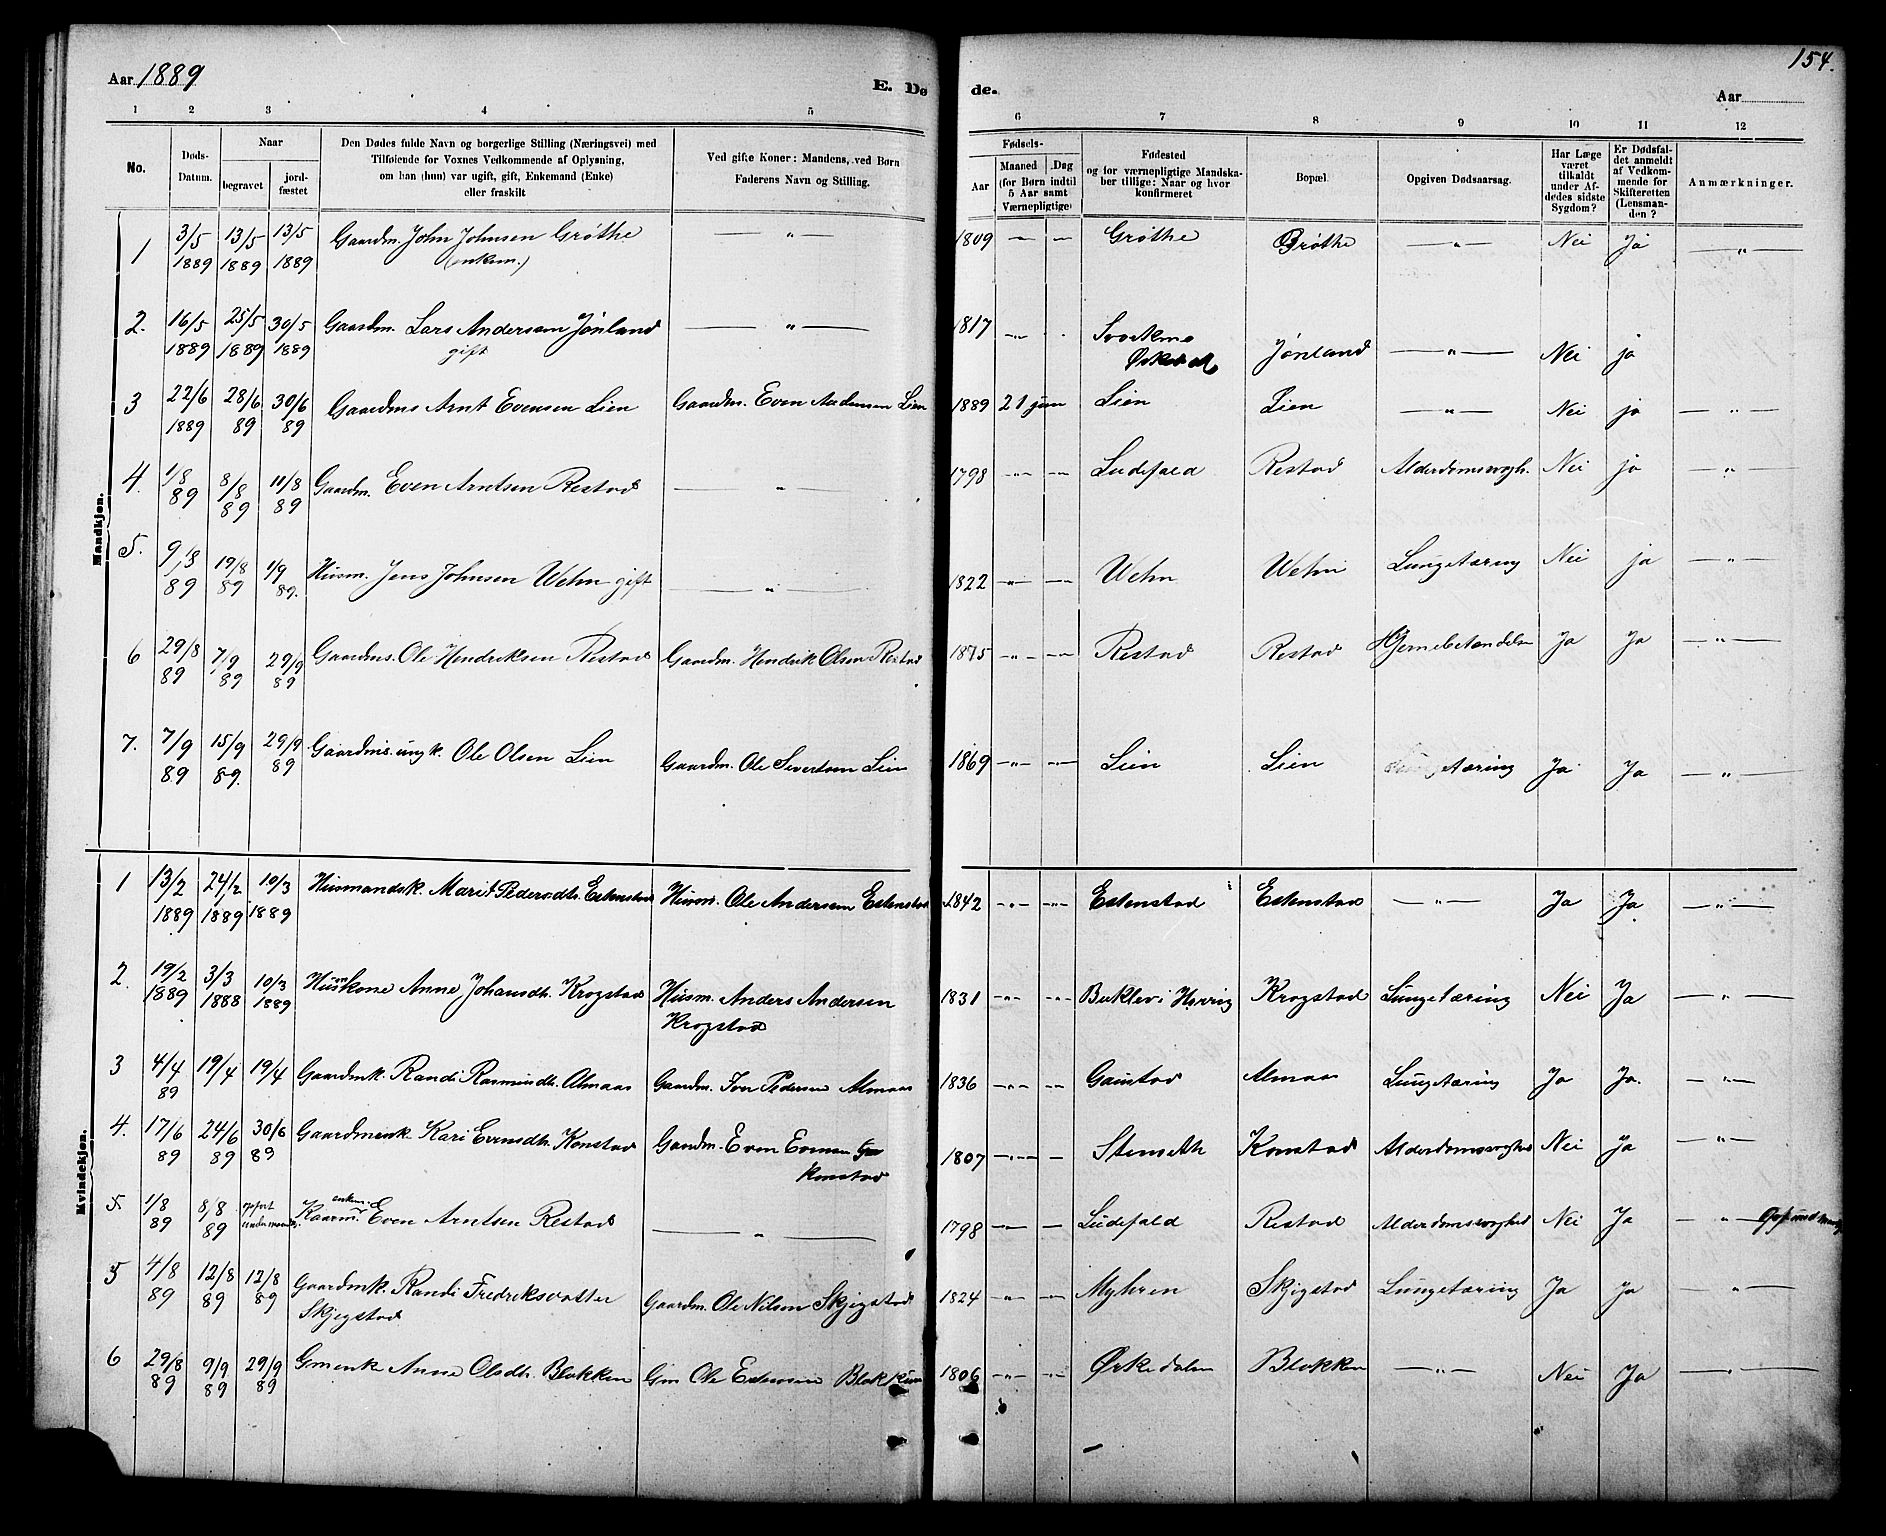 Aar 1889
E. Dø de.
154.
Aar
1 2 3 4 5 6 7 8 9 10 11 12
No.
Døds-Datum.
Naar
begravet
jordfæstet
Den Dødes fulde Navn og borgerlige Stilling (Næringsvei) med
Tilføiende for Voxnes Vedkommende af Oplysning,
om han (hun) var ugift, gift, Enkemand (Enke)
eller fraskilt
Ved gifte Koner: Mandens, ved Børn
Faderens Navn og Stilling.
Fødsels-
Aar
Maaned Dag
(for Børn indtil
5 Aar samt
Værnepligtige)
Fødested
og for værnepligtige Mandska-
ber tillige: Naar og hvor
konfirmeret
Bopæl.
Opgiven Dødsaarsag.
Har Læge
været
tilkaldt
under Af-
dødes sidste
Sygdom?
Er Dødsfal-
det anmeldt
af Vedkom-
mende for
Skifteretten
(Lensman-
den?
Anmærkninger.
Mandkjøn.
1 3/5 1889 13/5 1889 13/5 1889 Gaardm. John Johnsen Grøthe (enkem.) — " — 1809 — — Grøthe Grøthe — " — Nei Ja — " —
2. 16/5 1889 25/5 1889 30/5 1889 Gaardm. Lars Andersen Jønland gift — " — 1817 — " — Jønland — " — Nei ja
3 22/6 1889 28/6 89 30/6 89 Gaardms Arnt Evensen Lien Gaardm. Even Andersen Lien 1889 21 juni Lien Lien — " — Nei ja — " —
4. 1/8 89 8/8 89 11/8 89 Gaardm. Even Arntsen Restad — " — 1798 — " — — " — Ludefald Restad Alderdomssvagh. Nei ja — " —
5. 9/8 89 19/8 89 1/9 89. Husm. Jens Johnsen Wehn gift — " — 1822 — " — — " — Wehn Wehn Lungetæring Nei ja — " —
6 29/8 89 7/9 89 29/9 89 Gaardms. Ole Hendriksen Restad Gaardm. Hendrik Olsen Restad 1875 — " — — " — Restad Restad Hjernebetændelse Ja Ja — " —
7. 7/9 89 15/9 89. 29/9 89 Gaardms. ungk. Ole Olsen Lien Gaardm. Ole Sivertsen Lien 1869 — " — — " — Lien Lien Lungetæring Ja Ja — " —
Kvindekjøn.
1 13/2 1889 24/2 1889 10/3 1889 Husmandsk. Marit Pedersdtr. Estenstad Husm. Ole Andersen Estenstad 1842 — " — — " — Estenstad Estenstad — " — Ja Ja — " —
2. 19/2 1889 3/3 1888 10/3 1889 Husmkone Anne Johansdtr. Krogstad Husm. Anders Andersen Krogstad 1831 — " — — " — Buklev i Krogstad Lungetæring Nei Ja — " —
3 4/4 89 19/4 19/4 Gaardmk. Randi Rasmusdtr. Almaas Gaardm. Iver Pedersen Almaas 1836 — " — — " — Gaustad Almaas Lungetæring Ja Ja. — " —
4. 17/6 89 24/6 89 30/6 89 Gaardmenk. Kari Evensdtr. Konstad Gaardm. Even Evensen Konstad 1807 — " — — Stenseth Konstad Alderdomssvaghed Nei Ja — " —
5. 1/8 89 8/8 89 opført under mandk. enkem. Gaardm. Even Arntsen Restad — " — 1798 — — Ludefald Restad Alderdomssvaghed Nei Ja — " — Opf. und mandkj
5 4/8 89 12/8 89 12/8 89 Gaardmk. Randi Fredriksdatter Skjegstad Gaardm. Ole Nilsen Skjegstad 1824 — " — — " — Myhren Skjegstad Lungetæring Ja Ja — " —
6 29/8 89 9/9 89 29/9 89 Gmenk Anne Olsdtr. Blokken Gm Ole Estensen Blokken 1806 — " — — " — Ørkedalen Blokken — " — Nei Ja — " —